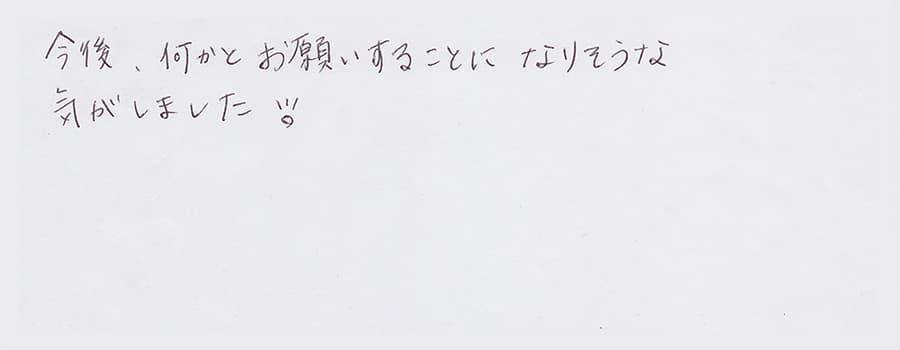 今後、何かとお願いすることになりそうな
気がしました!!